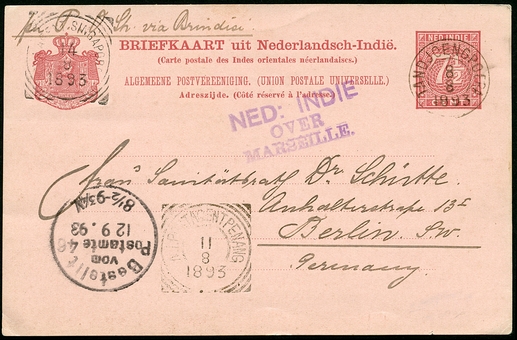 via Brindisi
14
9
1893
BRIEFKAART uit Nederlandsch-Indië.
(Carte postale des Indes orientales néerlandaises.)
ALGEMEENE POSTVEREENIGING. (UNION POSTALE UNIVERSELLE.)
Adreszijde. (Côté réservé à l'adresse.)
NED. INDIE
7½
TANDJOENGPOERA
6
8
1893
NED: INDIE
OVER
MARSEILLE.
Frau Sanitätsrath Dr. Schütte.
Anhalterstrasse 13I
Berlin S.W.
Germany
Bestellt
vom
Postamte 48
12 9. 93
8½-9¾V
N.I. POSTAGENT PENANG
11
8
1893